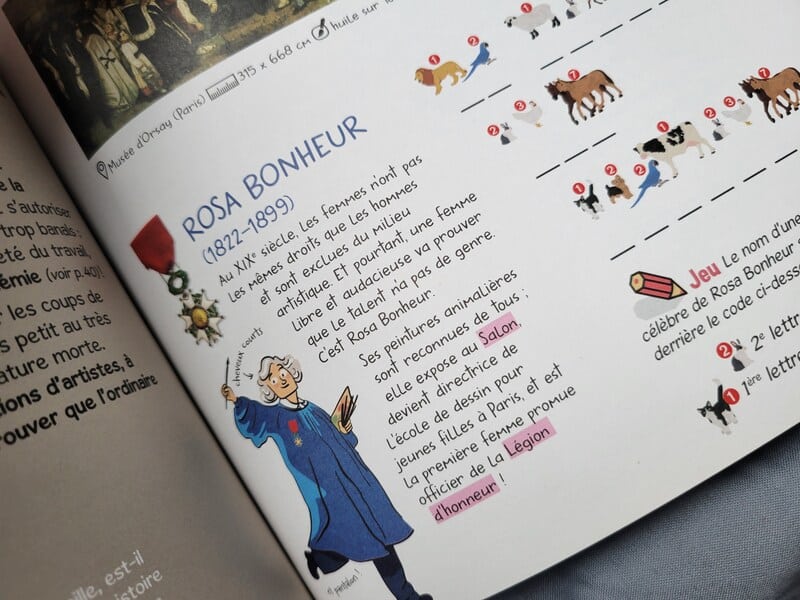 Musée d'Orsay (Paris) 315 x 668 cm huile sur
ROSA BONHEUR
(1822-1899)
Au XIXe siècle, les femmes n'ont pas
les mêmes droits que les hommes
et sont exclues du milieu
artistique. Et pourtant, une femme
libre et audacieuse va prouver
que le talent n'a pas de genre.
C'est Rosa Bonheur.
Ses peintures animalières
sont reconnues de tous ;
elle expose au Salon,
devient directrice de
l'école de dessin pour
jeunes filles à Paris, et est
la première femme promue
officier de la Légion
d'honneur !
cheveux courts
et pantalon !
de la
s'autoriser
trop banals :
té du travail,
émie (voir p.40) !
r les coups de
s petit au très
ature morte.
ions d'artistes, à
rouver que l'ordinaire
ille, est-il
histoire
1 2 1
2 3 7
1 2 1 2 3 7
Jeu Le nom d'une
célèbre de Rosa Bonheur
derrière le code ci-desse
2 2e lettr
1 1ère lettr